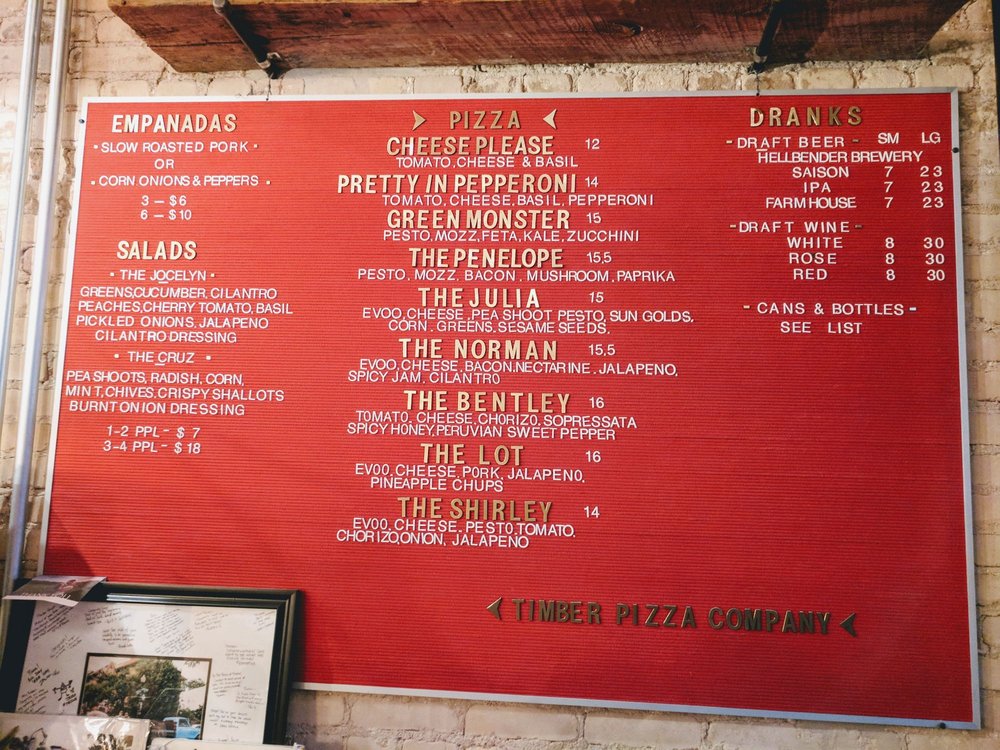 EMPANADAS
• SLOW ROASTED PORK •
OR
• CORN, ONIONS & PEPPERS •
3 — $6
6 — $10
SALADS
• THE JOCELYN •
GREENS, CUCUMBER, CILANTRO
PEACHES, CHERRY TOMATO, BASIL
PICKLED ONIONS, JALAPENO
CILANTRO DRESSING
• THE CRUZ •
PEA SHOOTS, RADISH, CORN,
MINT, CHIVES, CRISPY SHALLOTS
BURNT ONION DRESSING
1-2 PPL - $ 7
3-4 PPL - $ 18
PIZZA
CHEESE PLEASE 12
TOMATO, CHEESE & BASIL
PRETTY IN PEPPERONI 14
TOMATO, CHEESE, BASIL, PEPPERONI
GREEN MONSTER 15
PESTO, MOZZ, FETA, KALE, ZUCCHINI
THE PENELOPE 15.5
PESTO, MOZZ, BACON, MUSHROOM, PAPRIKA
THE JULIA 15
EVOO, CHEESE, PEA SHOOT PESTO, SUN GOLDS,
CORN, GREENS, SESAME SEEDS,
THE NORMAN 15.5
EVOO, CHEESE, BACON, NECTARINE, JALAPENO,
SPICY JAM, CILANTRO
THE BENTLEY 16
TOMATO, CHEESE, CHORIZO, SOPRESSATA
SPICY HONEY, PERUVIAN SWEET PEPPER
THE LOT 16
EVOO, CHEESE, PORK, JALAPENO,
PINEAPPLE CHUPS
THE SHIRLEY 14
EVOO, CHEESE, PESTO, TOMATO,
CHORIZO, ONION, JALAPENO
DRANKS
- DRAFT BEER - SM LG
HELLBENDER BREWERY
SAISON 7 23
IPA 7 23
FARMHOUSE 7 23
- DRAFT WINE -
WHITE 8 30
ROSE 8 30
RED 8 30
- CANS & BOTTLES -
SEE LIST
TIMBER PIZZA COMPANY